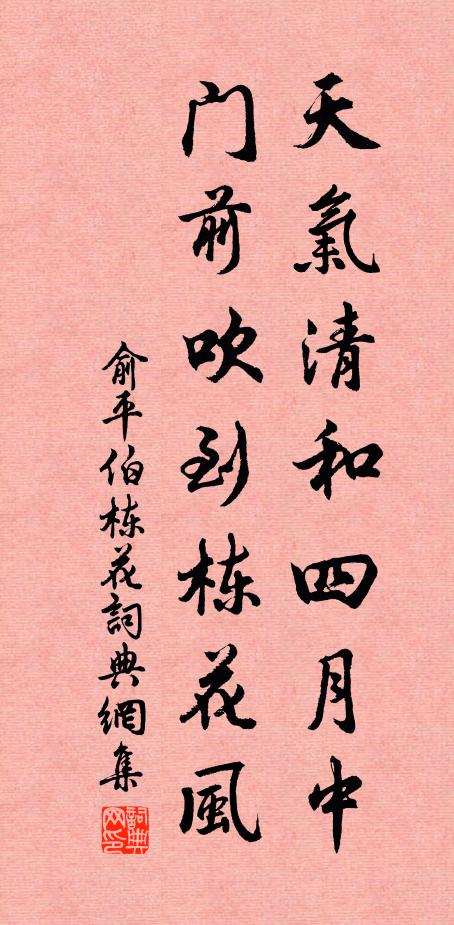 天氣清和四月中
门前吹到楝花風
俞平伯楝花詞典網集
詞典网印